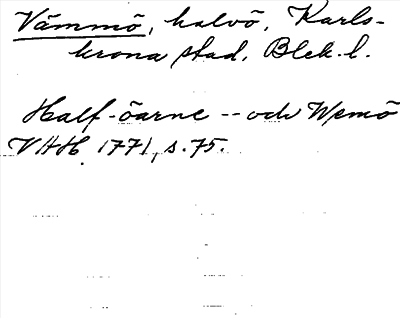 Vämmö, halvö, Karls-
krona stad, Blek. l.
Half-öarne -- och Wemö
VHH 1771, s. 75.